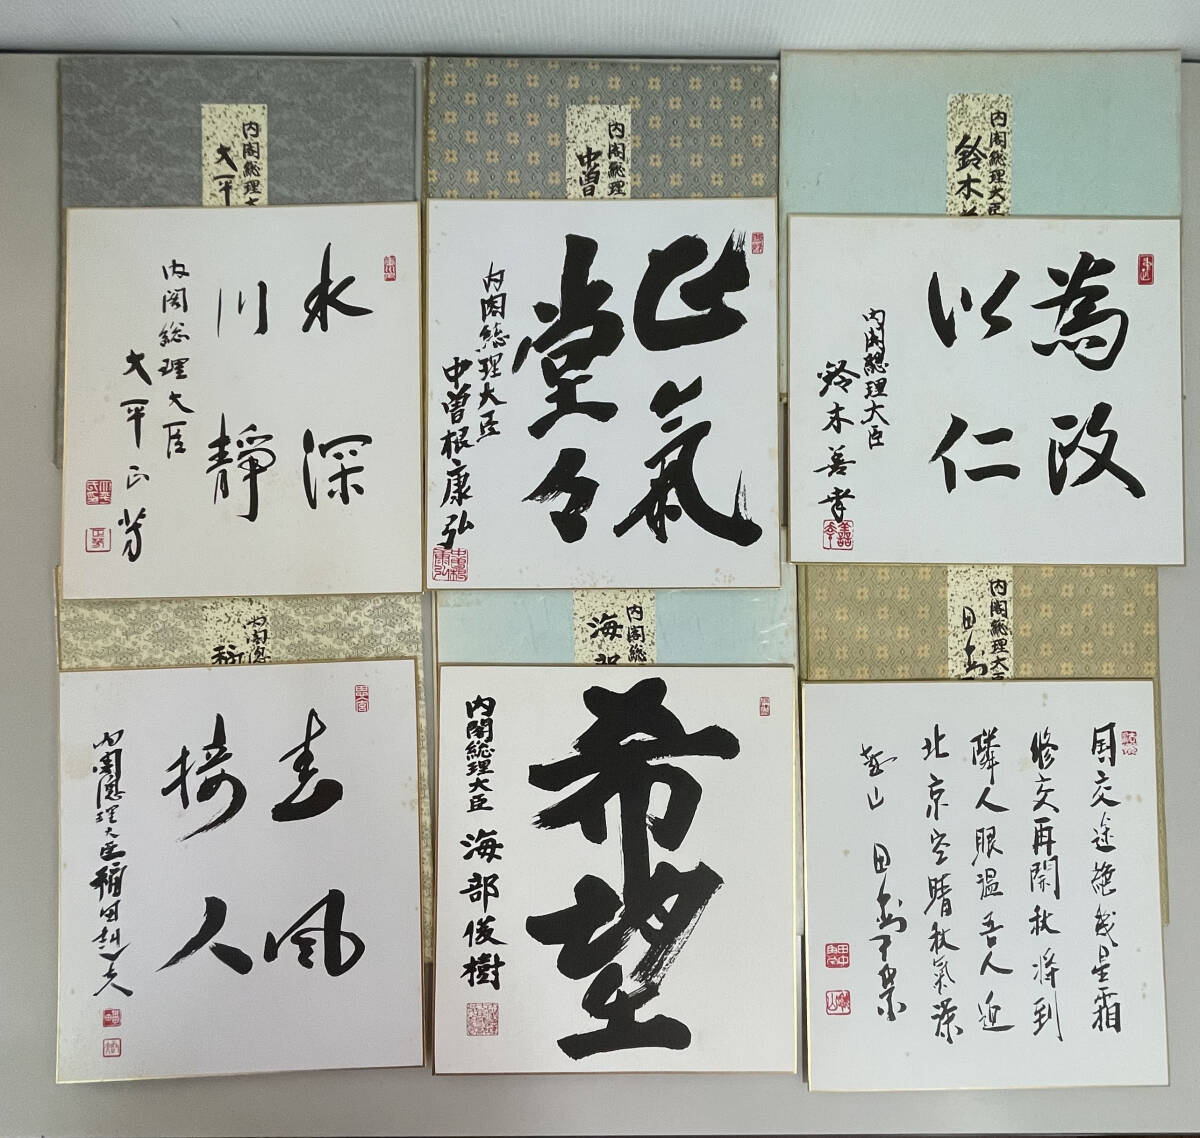 内閣総理大
大平
水深
川静
内閣総理大臣
大平正芳
内閣総理
中曽
正氣
堂々
内閣総理大臣
中曽根康弘
内閣総理大臣
鈴木善
為政
以仁
内閣総理大臣
鈴木善幸
内閣
春風
接人
内閣総理大臣 福田赳夫
内閣総
海部
希望
内閣総理大臣
海部俊樹
内閣総理大臣
田中
国交途絶幾星霜
修交再開秋将到
隣人眼温吾人迎
北京空晴秋氣深
越山 田中角栄